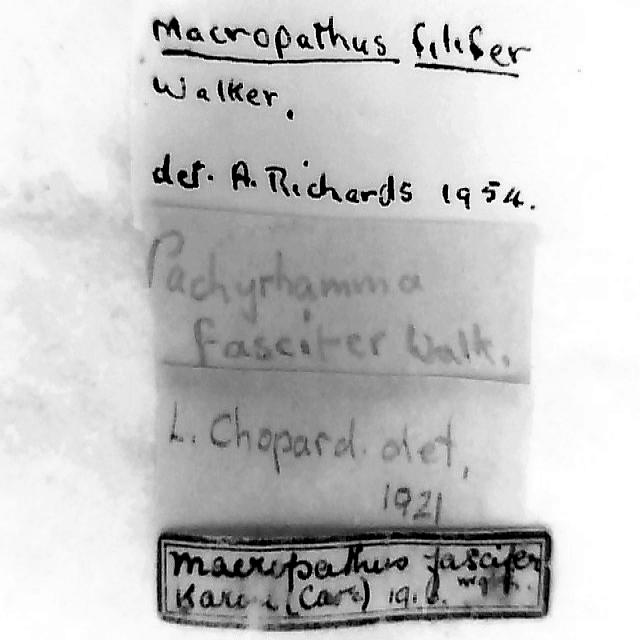 Macropathus filifer
Walker.
det. A. Richards 1954.
Pachyrhamma
fascifer Walk.
L. Chopard. det,
1921
Macropathus fascifer